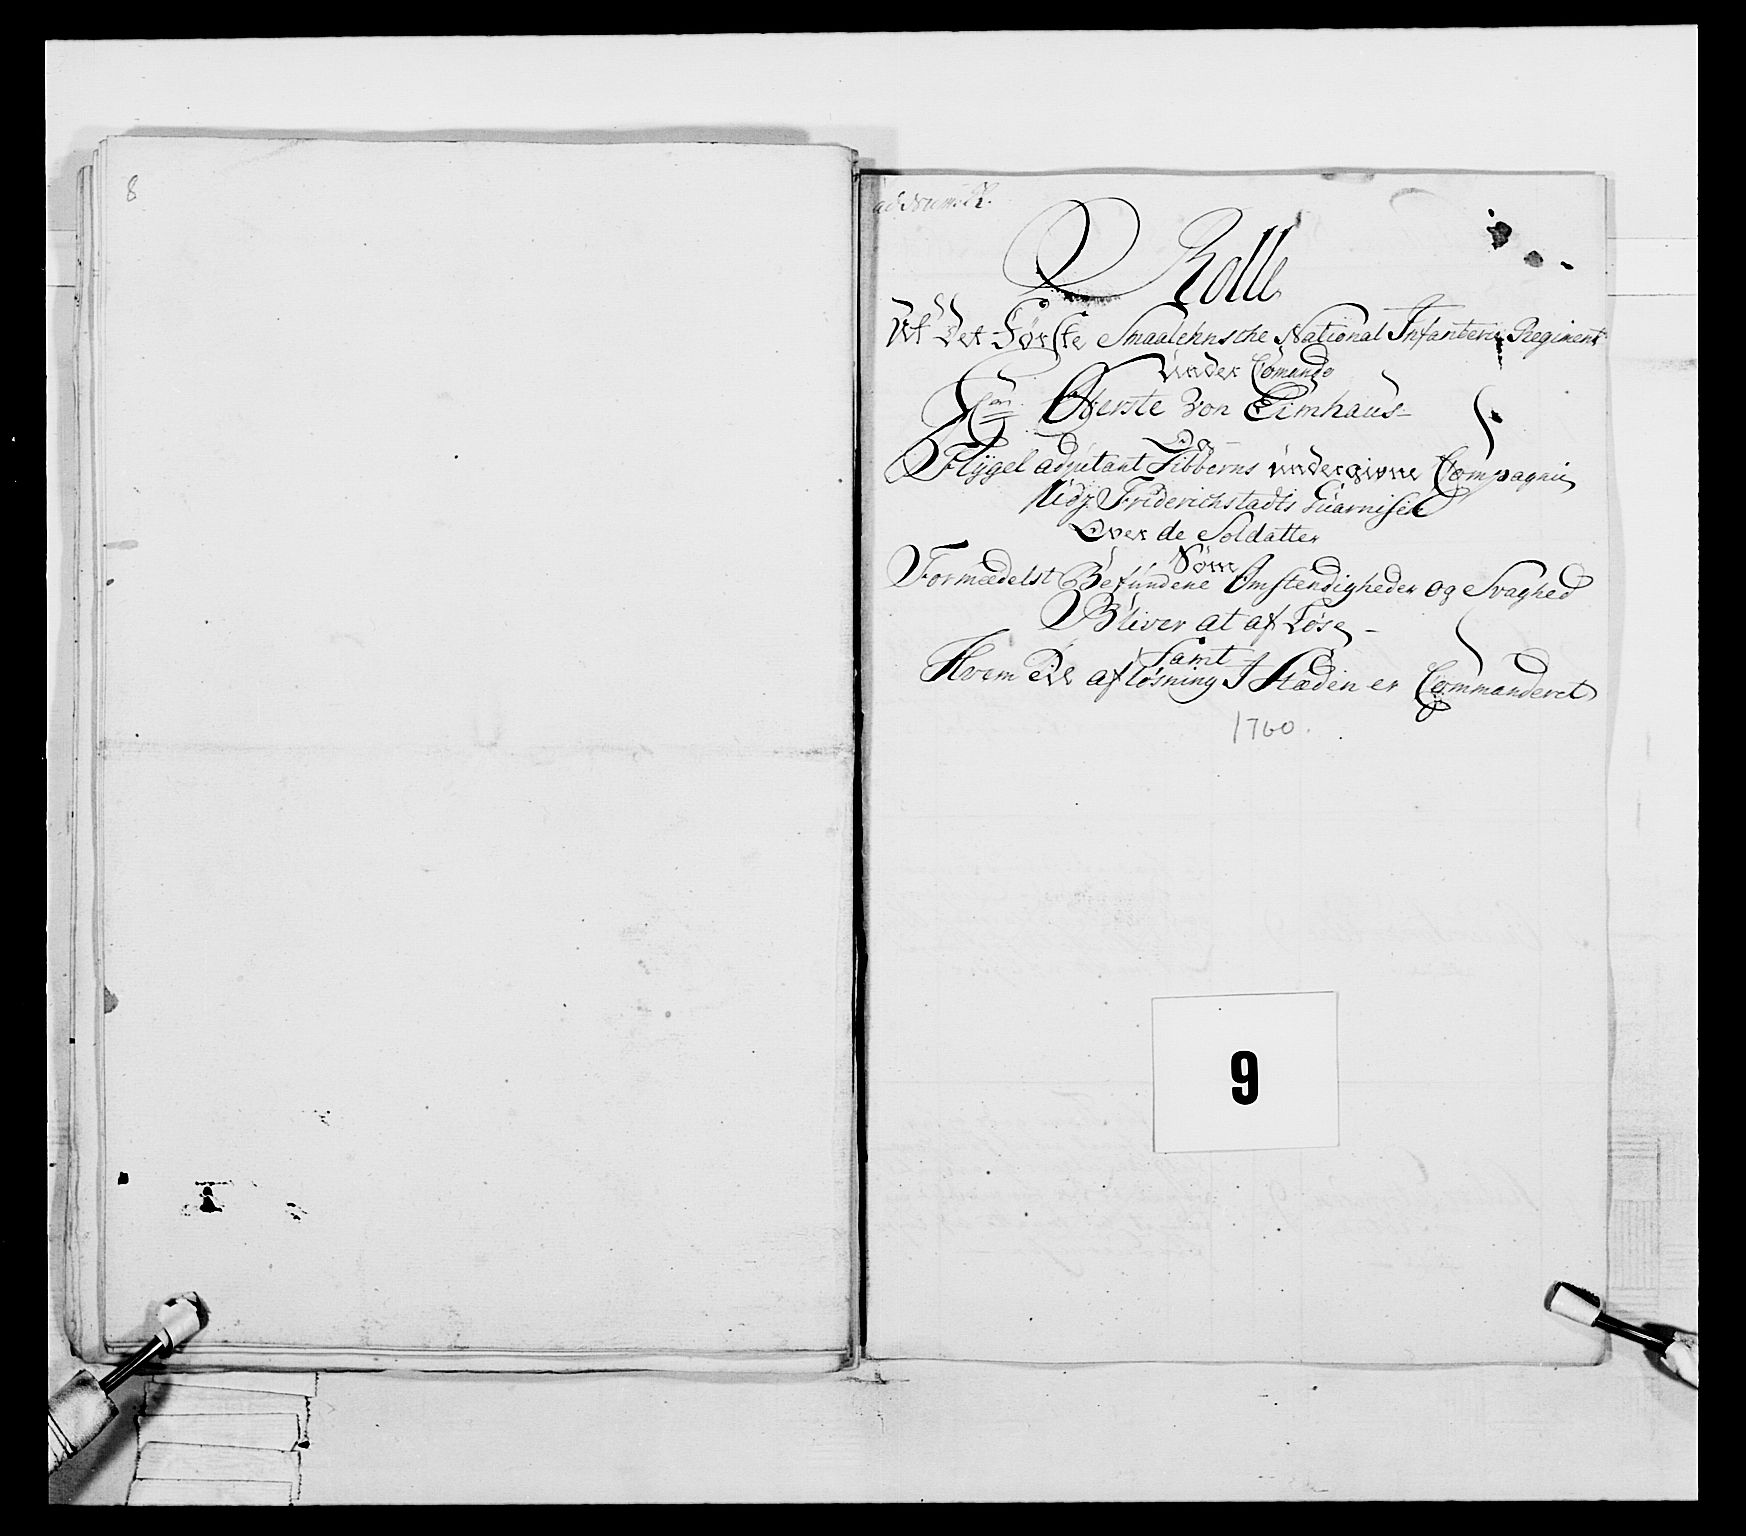 8
ad Num: 2.
Rolle
Af Det Første Smaalehnsche National Infanteri Regiment
Under Comando
Oberste von Eimhaus
Og
Flygel adjutant Tibberns undergivne Compagnie
Udj Friderichstadts Guarnison
Over de Soldatter
Som
Formedelst Befundene Omstendigheder og Svaghed
Bliver at af Løse
Samt
Hvem til afløsning I Stæden er Commanderet
1760.
9